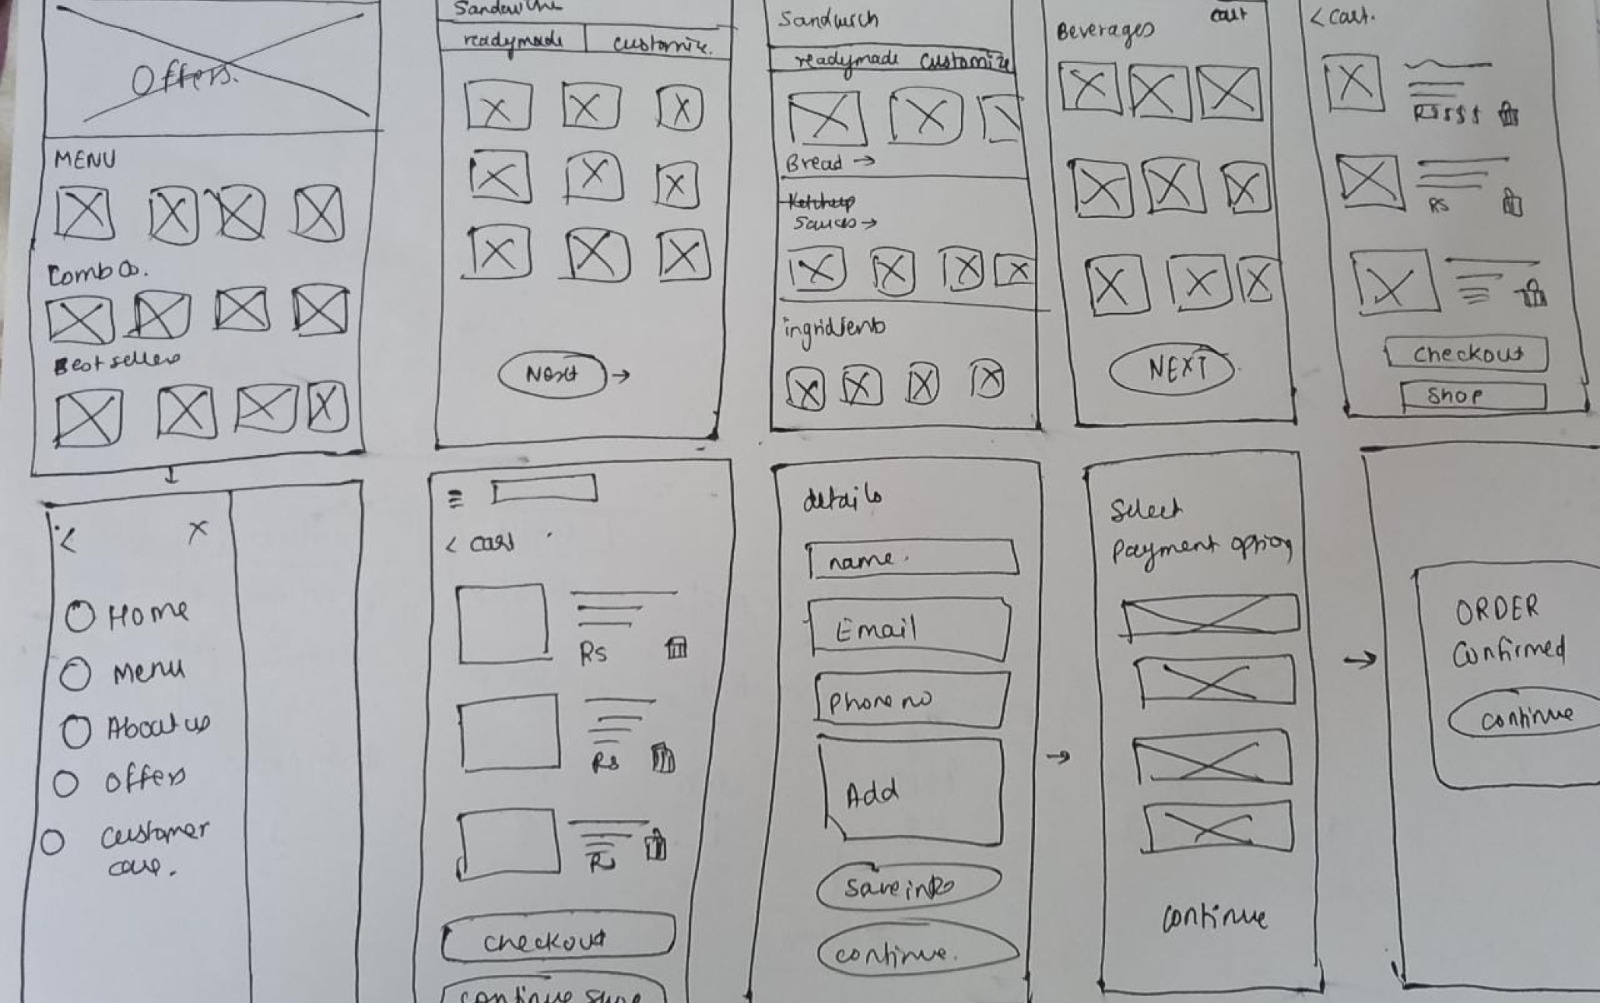 Offers.
MENU
Combo.
Best sellers
Sandwich
readymade
customize.
Next →
Sandwich
readymade customize
Bread →
Ketchup
Sauces →
ingridients
Beverages
cart
NEXT
< cart.
RS
RS
Checkout
Shop
< x
Home
menu
About us
offers
customer
care.
< cart
RS
Rs
Rs
checkout
continue
details
name.
Email
Phone no
Add
Save info
continue.
Select
Payment option
continue
ORDER
Confirmed
continue